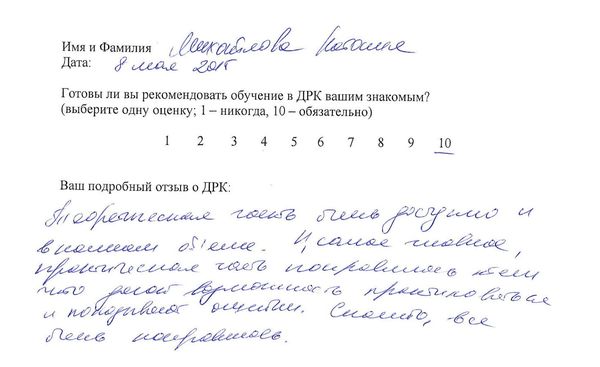 Имя и Фамилия Михайлова Наталья
Дата: 8 мая 2015
Готовы ли вы рекомендовать обучение в ДРК вашим знакомым?
(выберите одну оценку; 1 – никогда, 10 – обязательно)
1 2 3 4 5 6 7 8 9 10
Ваш подробный отзыв о ДРК:
Теоретическая часть очень доступно и
в полном объеме. И, самое главное,
практическая часть понравилась тем
что дают возможность практиковаться
и ошибки. Спасибо, все
очень понравилось.